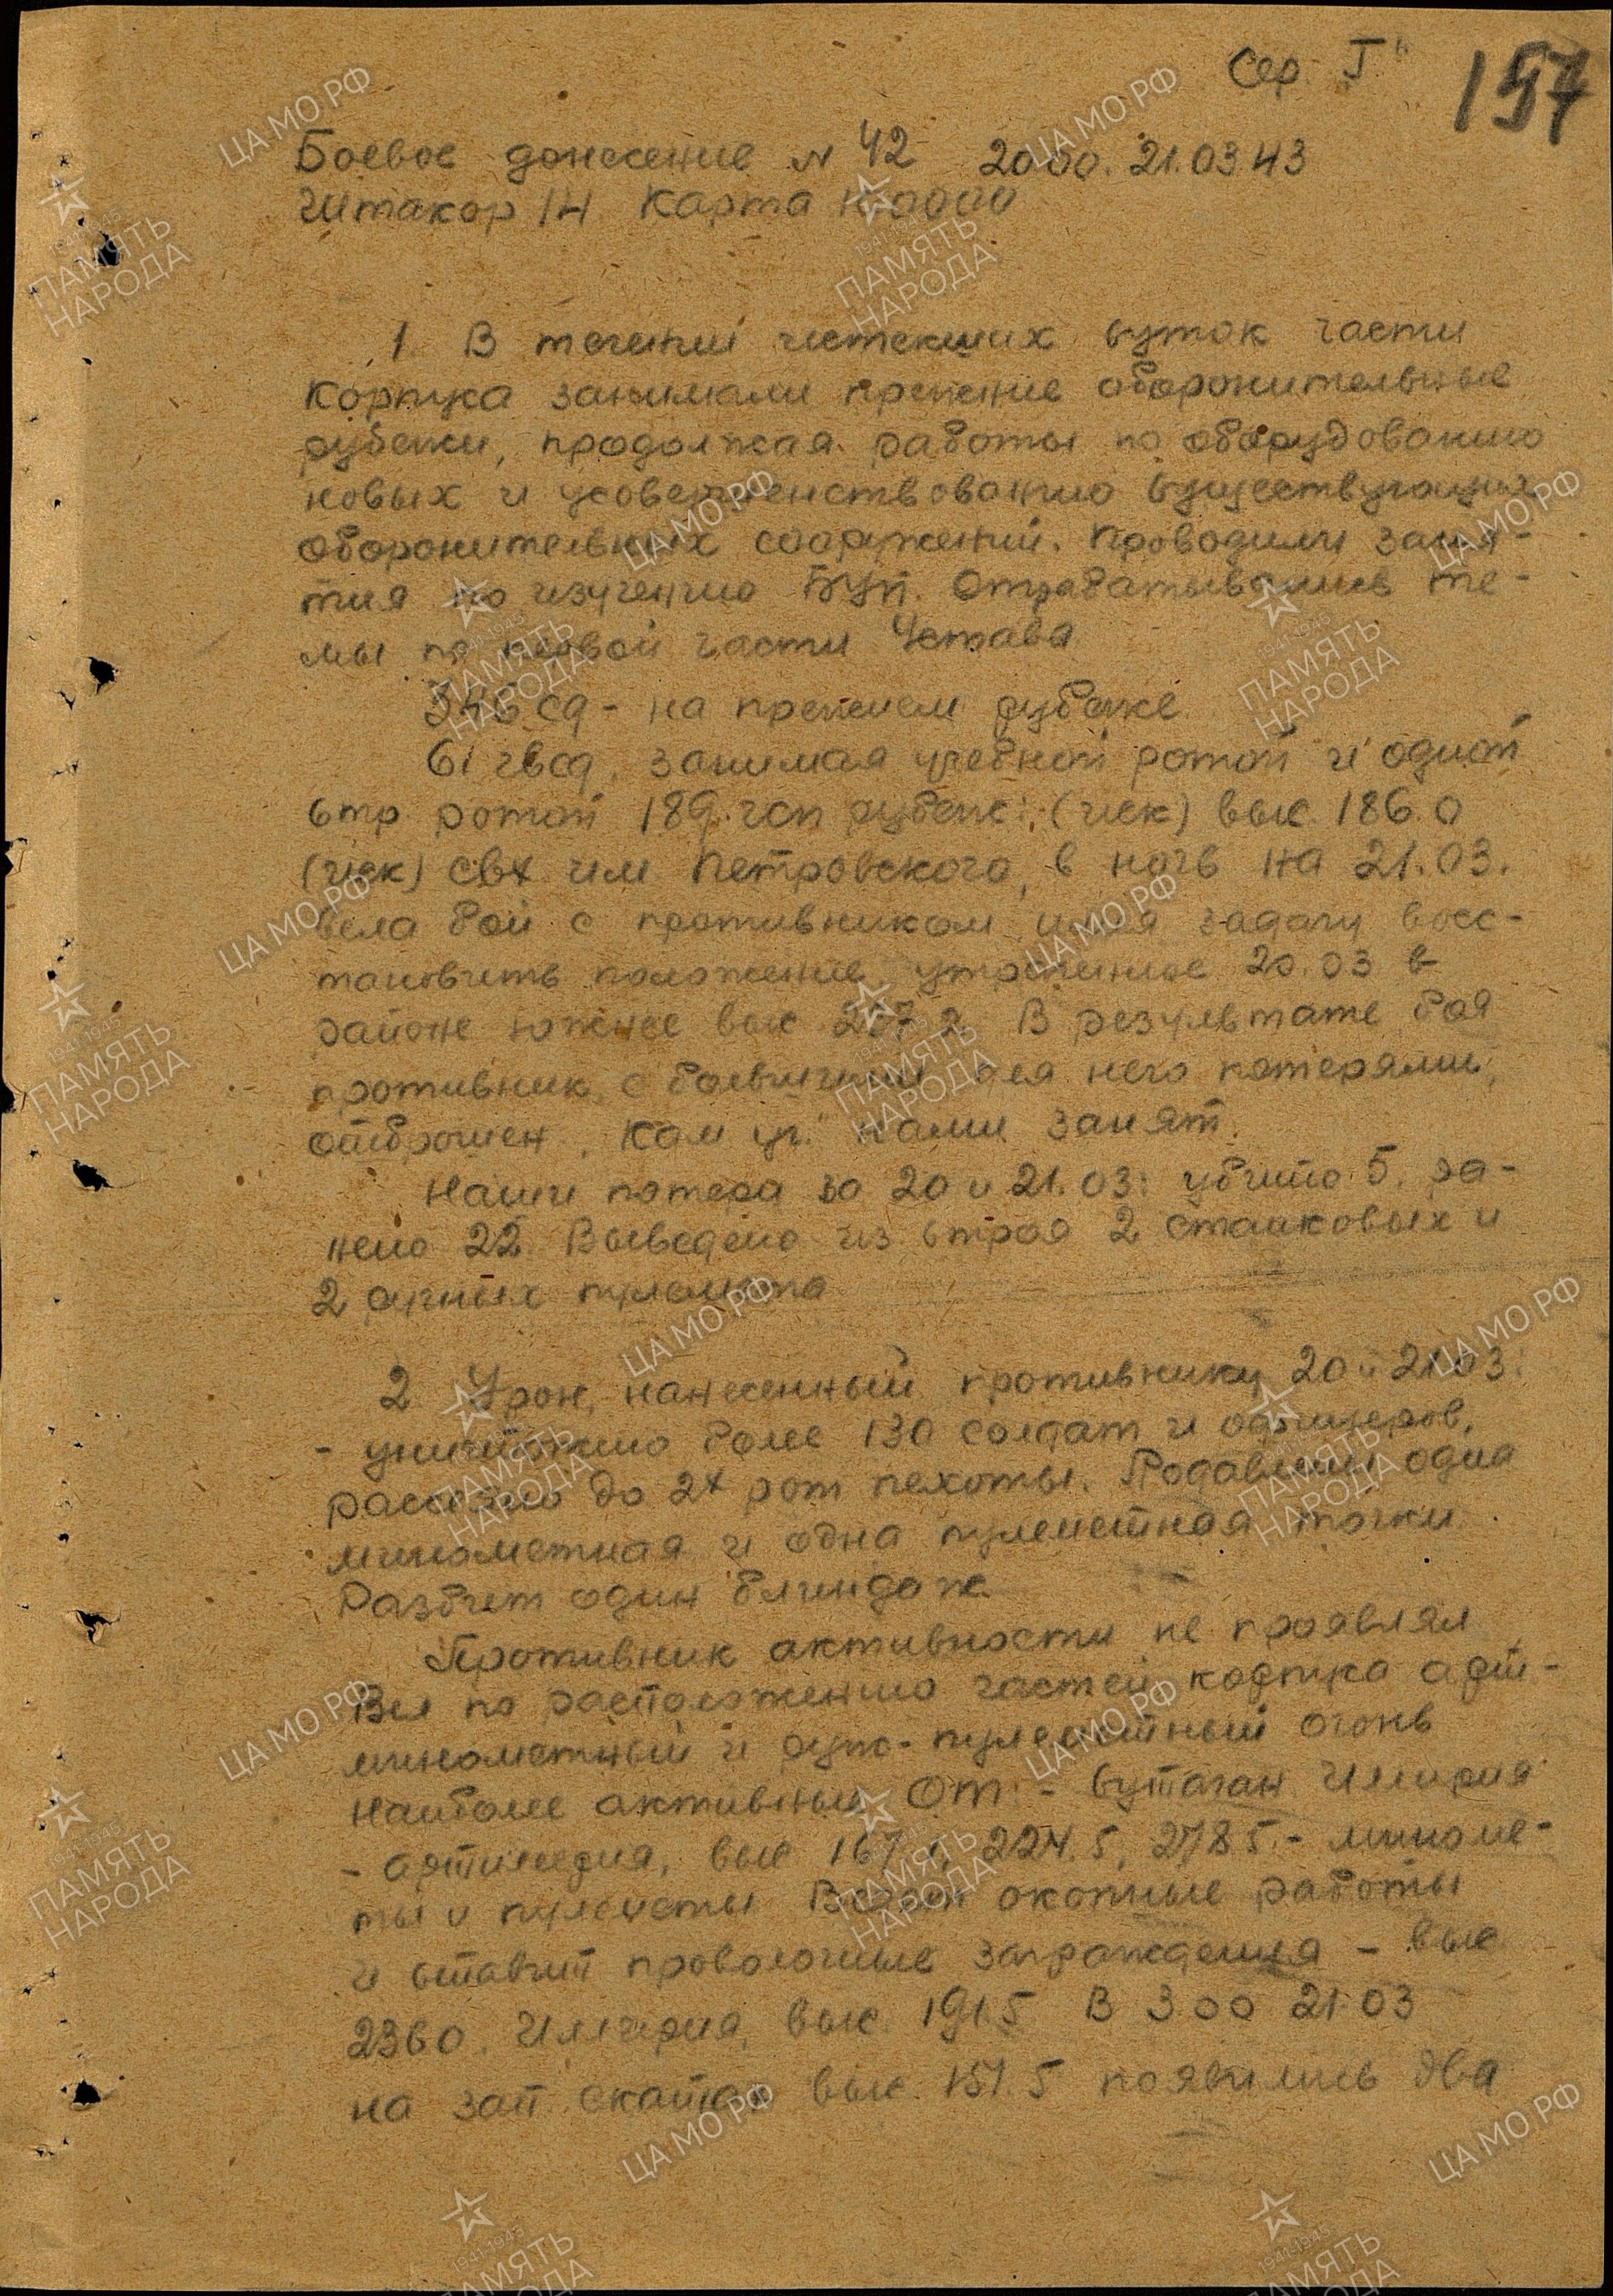 Сер. "Г"
197
Боевое донесение № 42 20.00. 21.03.43
Штакор 14 Карта 100000
1. В течении истекших суток части
корпуса занимали прежние оборонительные
рубежи, продолжая работы по оборудованию
новых и усовершенствованию существующих
оборонительных сооружений. Проводили заня-
тия по изучению БУП. Отрабатывались те-
мы по первой части Устава
346 сд - на прежнем рубеже
61 гвсд, занимая учебной ротой и одной
стр. ротой 189 гсп рубеж: (иск) выс. 186.0
(иск) свх им Петровского, в ночь на 21.03.
вела бой с противником имея задачу восс-
тановить положение, утраченное 20.03 в
районе южнее выс 207.2. В результате боя
противник, с большими для него потерями,
отброшен. Кам уг. нами занят.
Наши потери за 20 и 21.03: убито 5, ра-
нено 22. Выведено из строя 2 станковых и
2 ручных пулемета
2. Урон, нанесенный противнику 20 и 21.03:
- уничтожено более 130 солдат и офицеров,
рассеяно до 2х рот пехоты. Подавлены одна
минометная и одна пулеметная точки.
Разбит один блиндаж
Противник активности не проявлял,
Вел по расположению частей корпуса арт-
минометный и руж-пулеметный огонь
Наиболее активные ОТ: - Бутаган Иллирия
- артиллерия, выс 167.1, 224.5, 278.5 - миноме-
ты и пулеметы Ведет окопные работы
и ставит проволочные заграждения - выс
236.0, Иллирия, выс. 191.5 В 3.00 21.03
на зап. скатах выс. 151.5 появились два
ЦА МО РФ
1941-1945
ПАМЯТЬ
НАРОДА